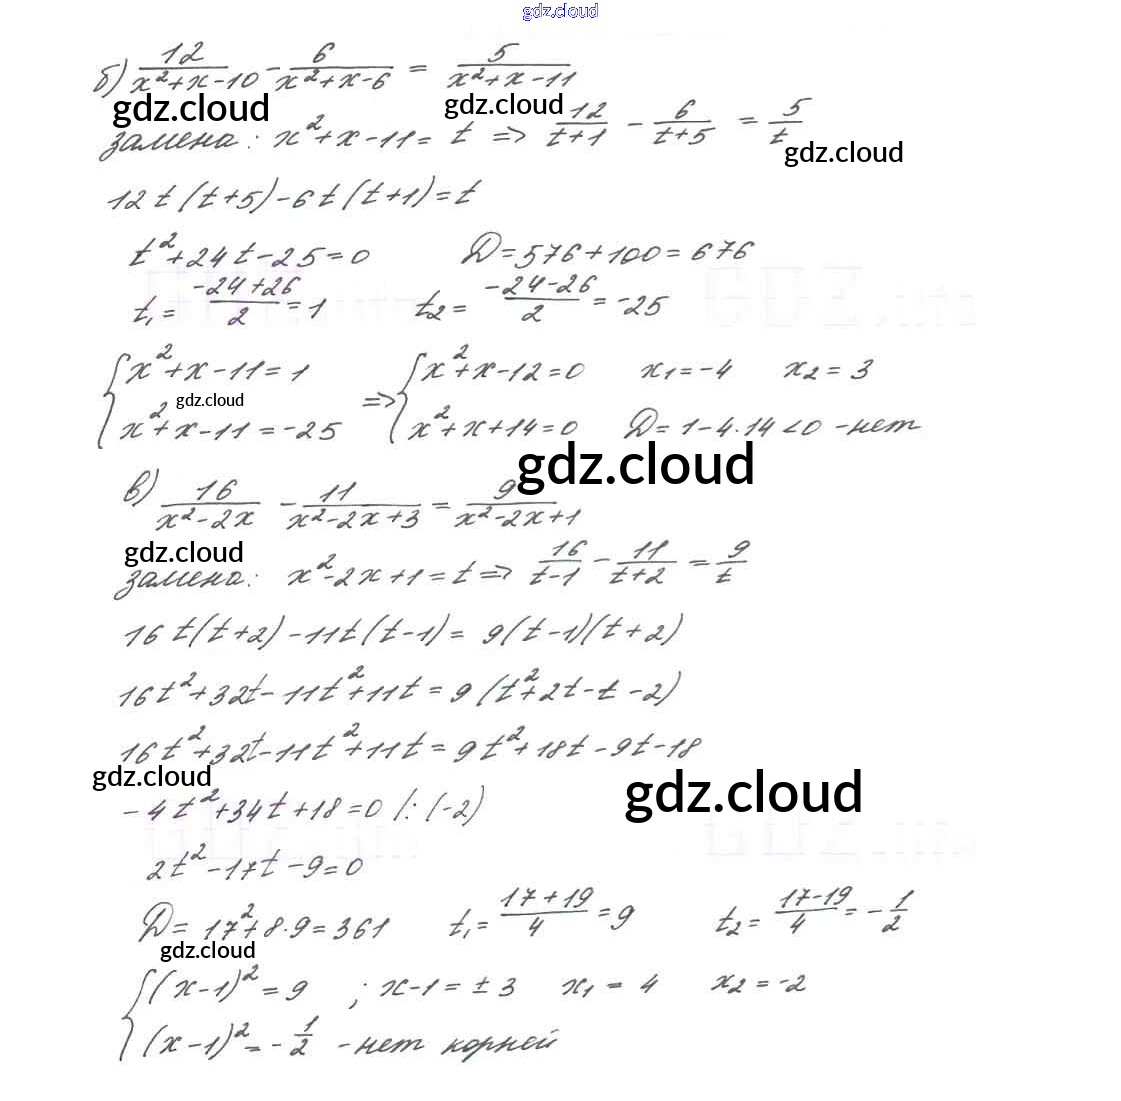 gdz.cloud
б) 12/(x²+x-10) - 6/(x²+x-6) = 5/(x²+x-11)
gdz.cloud gdz.cloud
замена: x²+x-11= t => 12/(t+1) - 6/(t+5) = 5/t
gdz.cloud
12t(t+5)-6t(t+1)=t
t²+24t-25=0 D=576+100=676
t₁= (-24+26)/2 =1 t₂= (-24-26)/2 = -25
{ x²+x-11=1 => { x²+x-12=0 x₁=-4 x₂=3
gdz.cloud
x²+x-11=-25 x²+x+14=0 D=1-4·14<0 -нет
gdz.cloud
в) 16/(x²-2x) - 11/(x²-2x+3) = 9/(x²-2x+1)
gdz.cloud
замена: x²-2x+1=t => 16/(t-1) - 11/(t+2) = 9/t
16t(t+2)-11t(t-1)= 9(t-1)(t+2)
16t²+32t-11t²+11t=9(t²+2t-t-2)
16t²+32t-11t²+11t=9t²+18t-9t-18
gdz.cloud gdz.cloud
-4t²+34t+18=0 /:(-2)
2t²-17t-9=0
D=17²+8·9=361 t₁= (17+19)/4 =9 t₂= (17-19)/4 = -1/2
gdz.cloud
{ (x-1)²=9 ; x-1=±3 x₁=4 x₂=-2
(x-1)²=-1/2 -нет корней